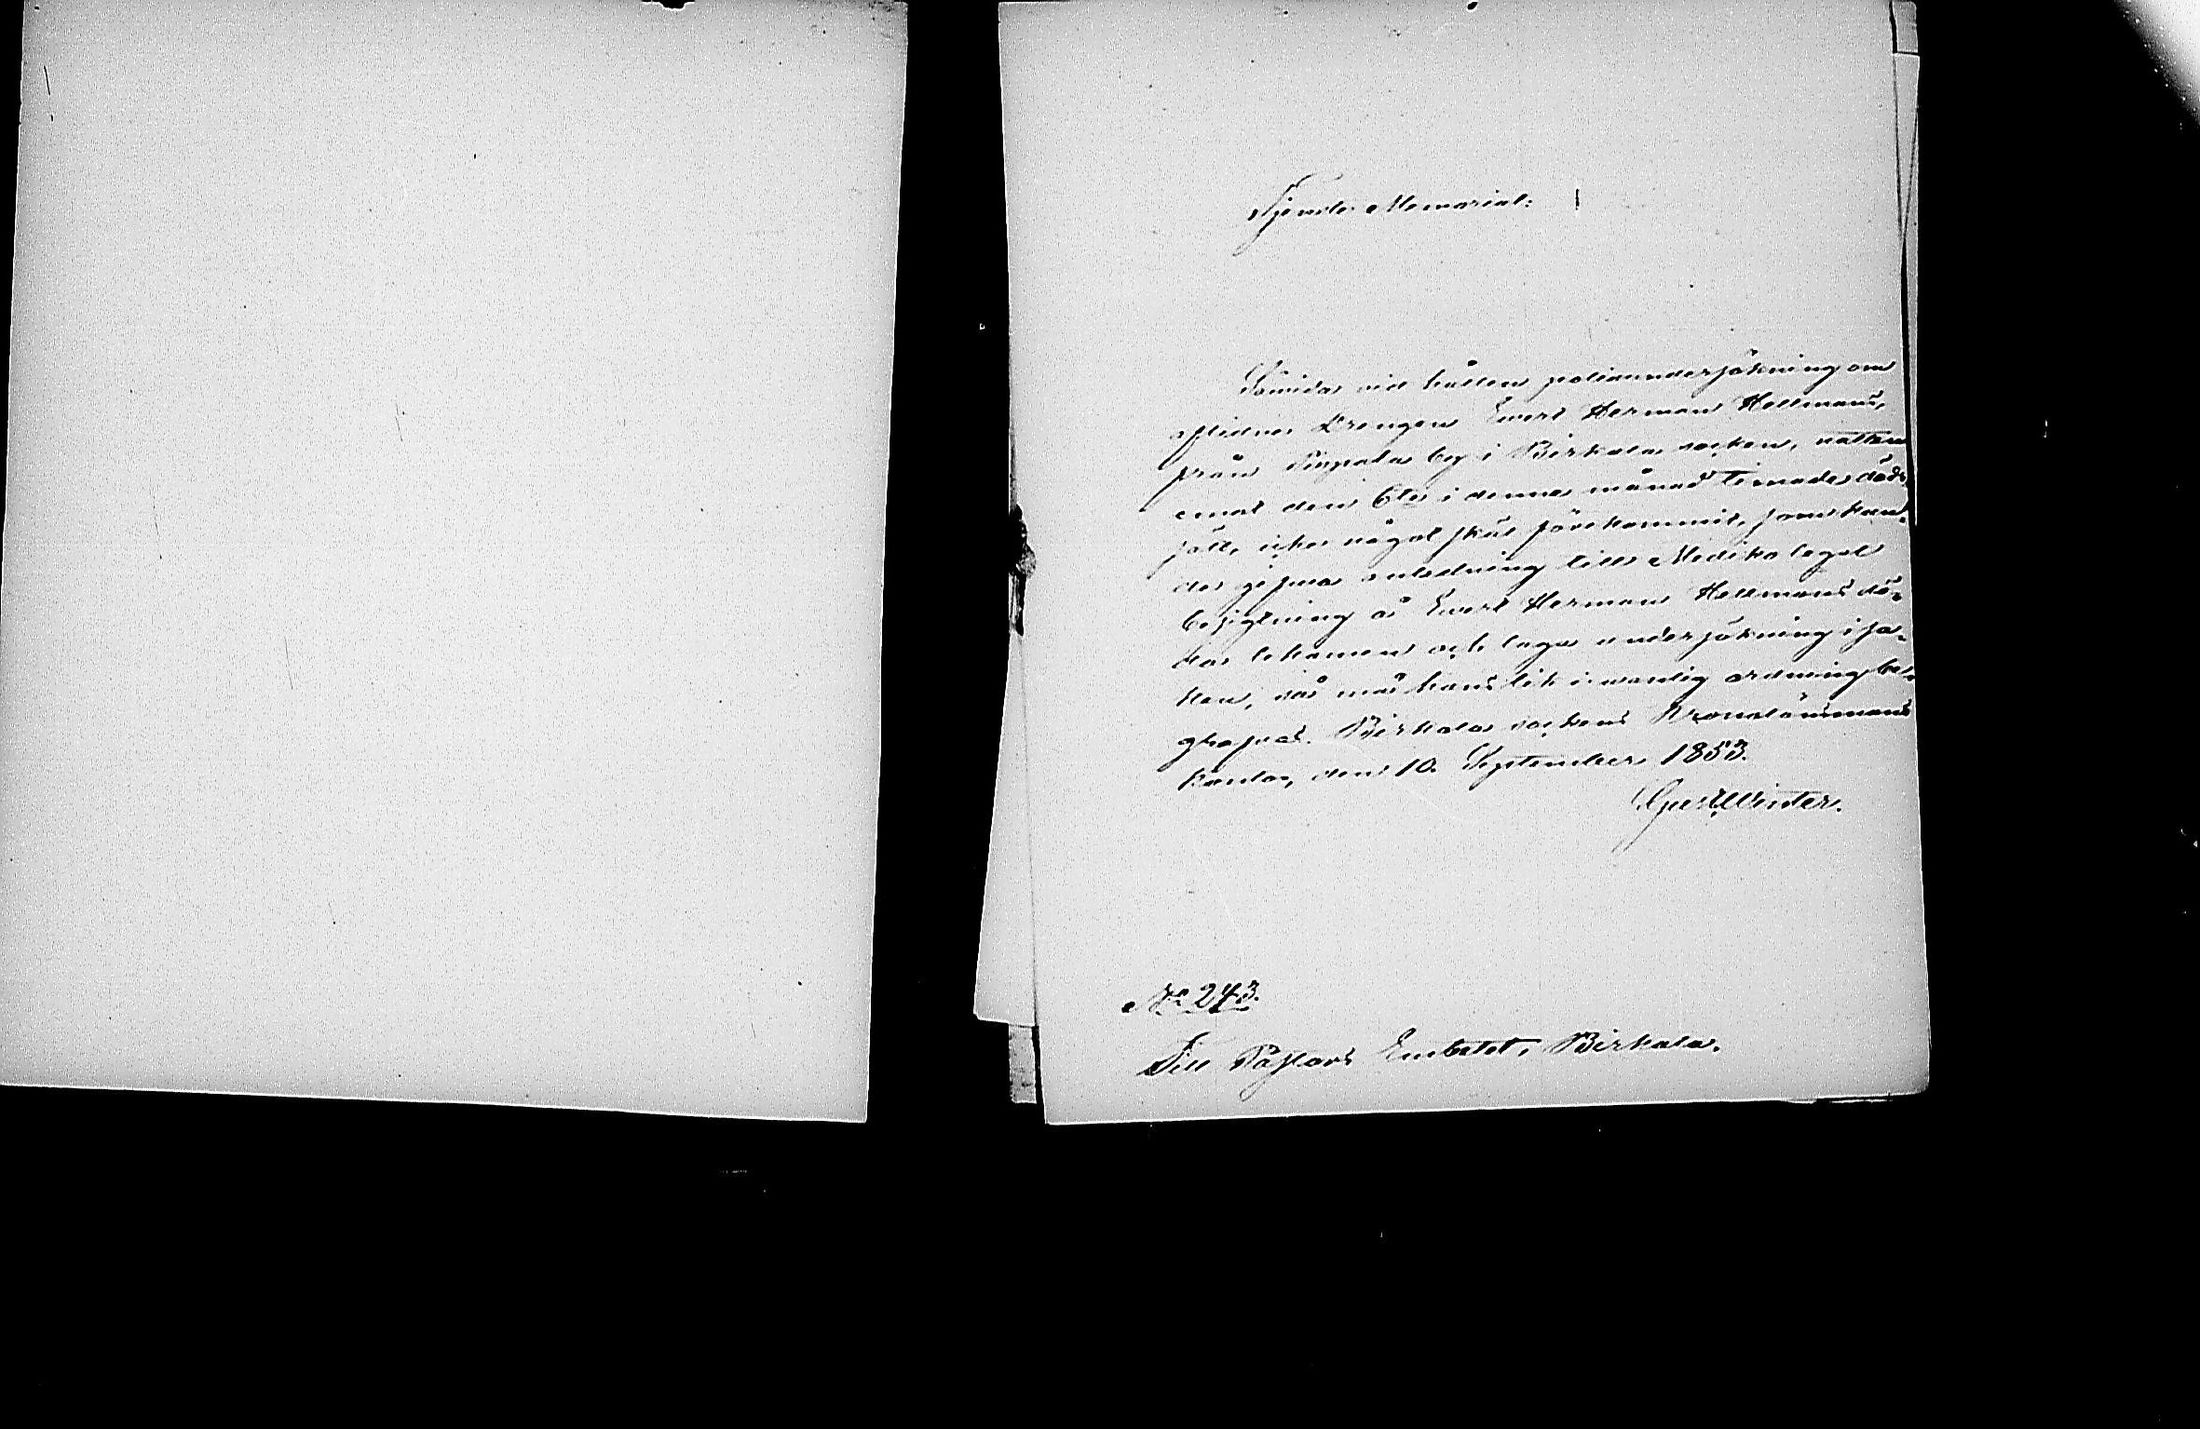 Tjenste Memorial:
Såvida vid hållen polisundersökning om
aflidne Drengen Evert Herman Hellmans,
från Pispala by i Birkala socken, natten
emot den 6te i denna månad timade döds-
fall, icke något skäl förekommit, som kun-
de gifva anledning till Mediko legal
besigtning å Evert Herman Hellmans dö-
da lekamen och laga undersökning i sa-
ken, så må hans lik i vanlig ordning be-
grafvas. Birkala sockens Kronolänsmans
kontor, den 10 September 1853.
Winter.
No 243.
Till Pastors Embetet i Birkala.